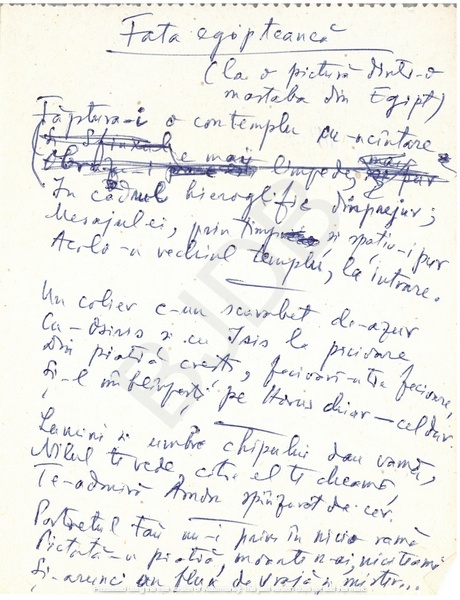 Fata egipteancă
(la o pictură dintr-o
mastaba din Egipt)
Făptura-i o contemplu cu-ncîntare
Și Sfinxul
e mai limpede, mai pur
În cadrul hieroglific dimprejur;
Mesajul ei, prin timp și spațiu-i pur
Acolo-n vechiul templu, la intrare.
Un colier c-un scarabet de-azur
Cu-Osiris și cu Isis la picioare
Din piatră crești, fecioară-ntre fecioare,
Și-l înveți pe Horus chiar – cel dur.
Lumini și umbre chipului dau vamă,
Nilul te vede, către el te cheamă,
Te-admiră Amon spînzurat de cer.
Portretul tău nu-i prins în nicio ramă
Pictată-n piatră, moarte n-ai, nici teamă
Și-arunci un flux de vrajă și mister...
BJDB